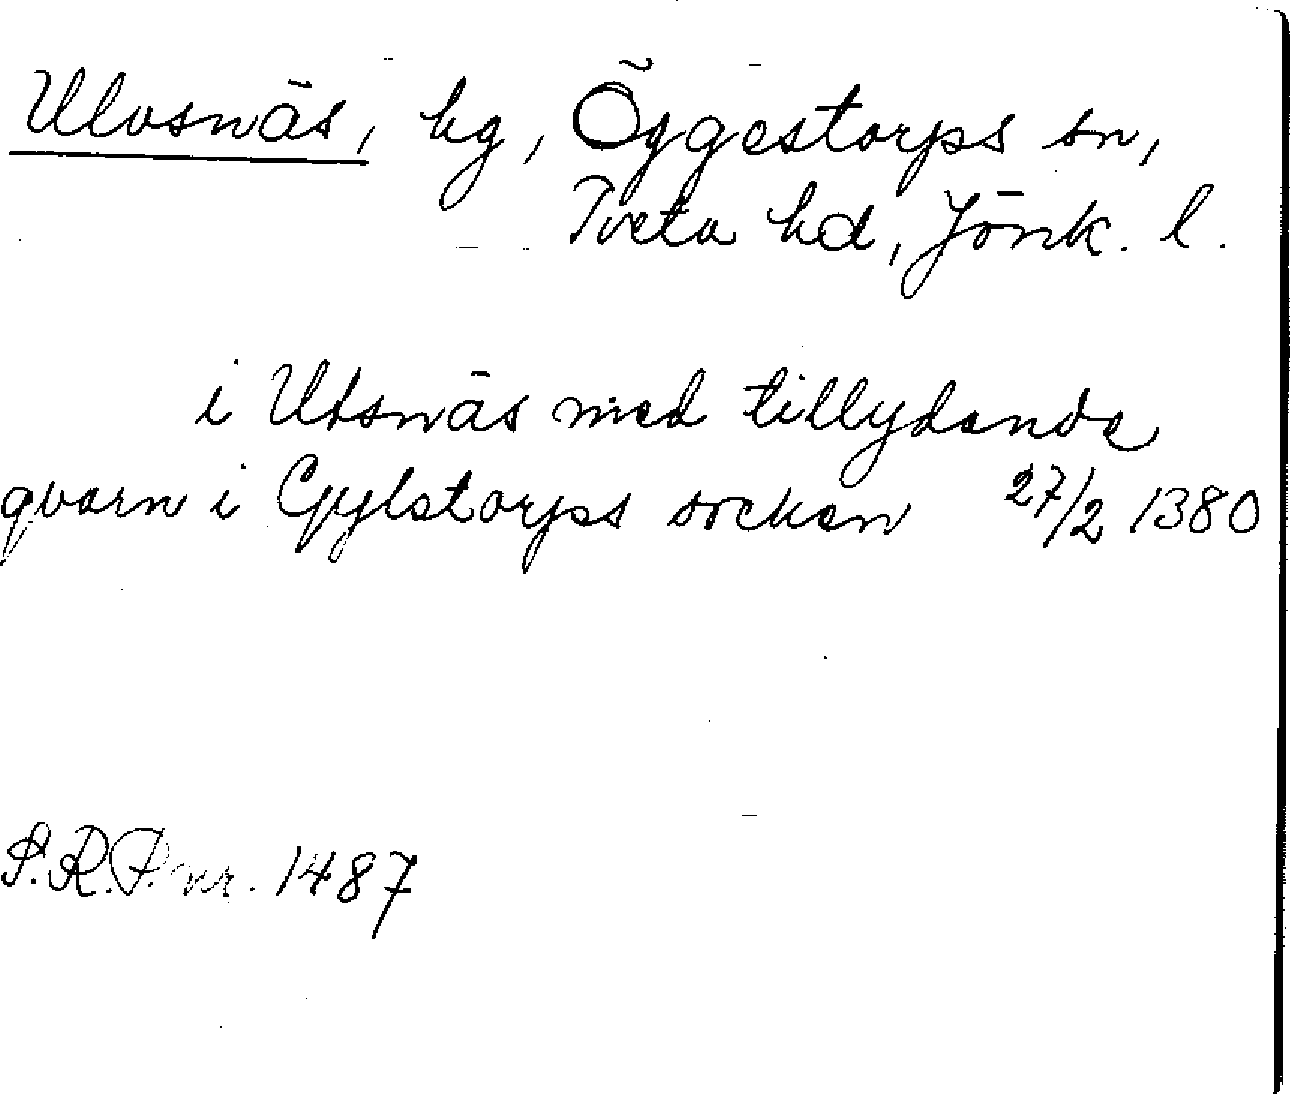 Ulvsnäs, hg, Öggestorps sn,
Tveta hd, Jönk. l.
i Utsnäs med tillydande
qvarn i Gylstorps socken 27/2 1380
S.R.P. nr. 1487